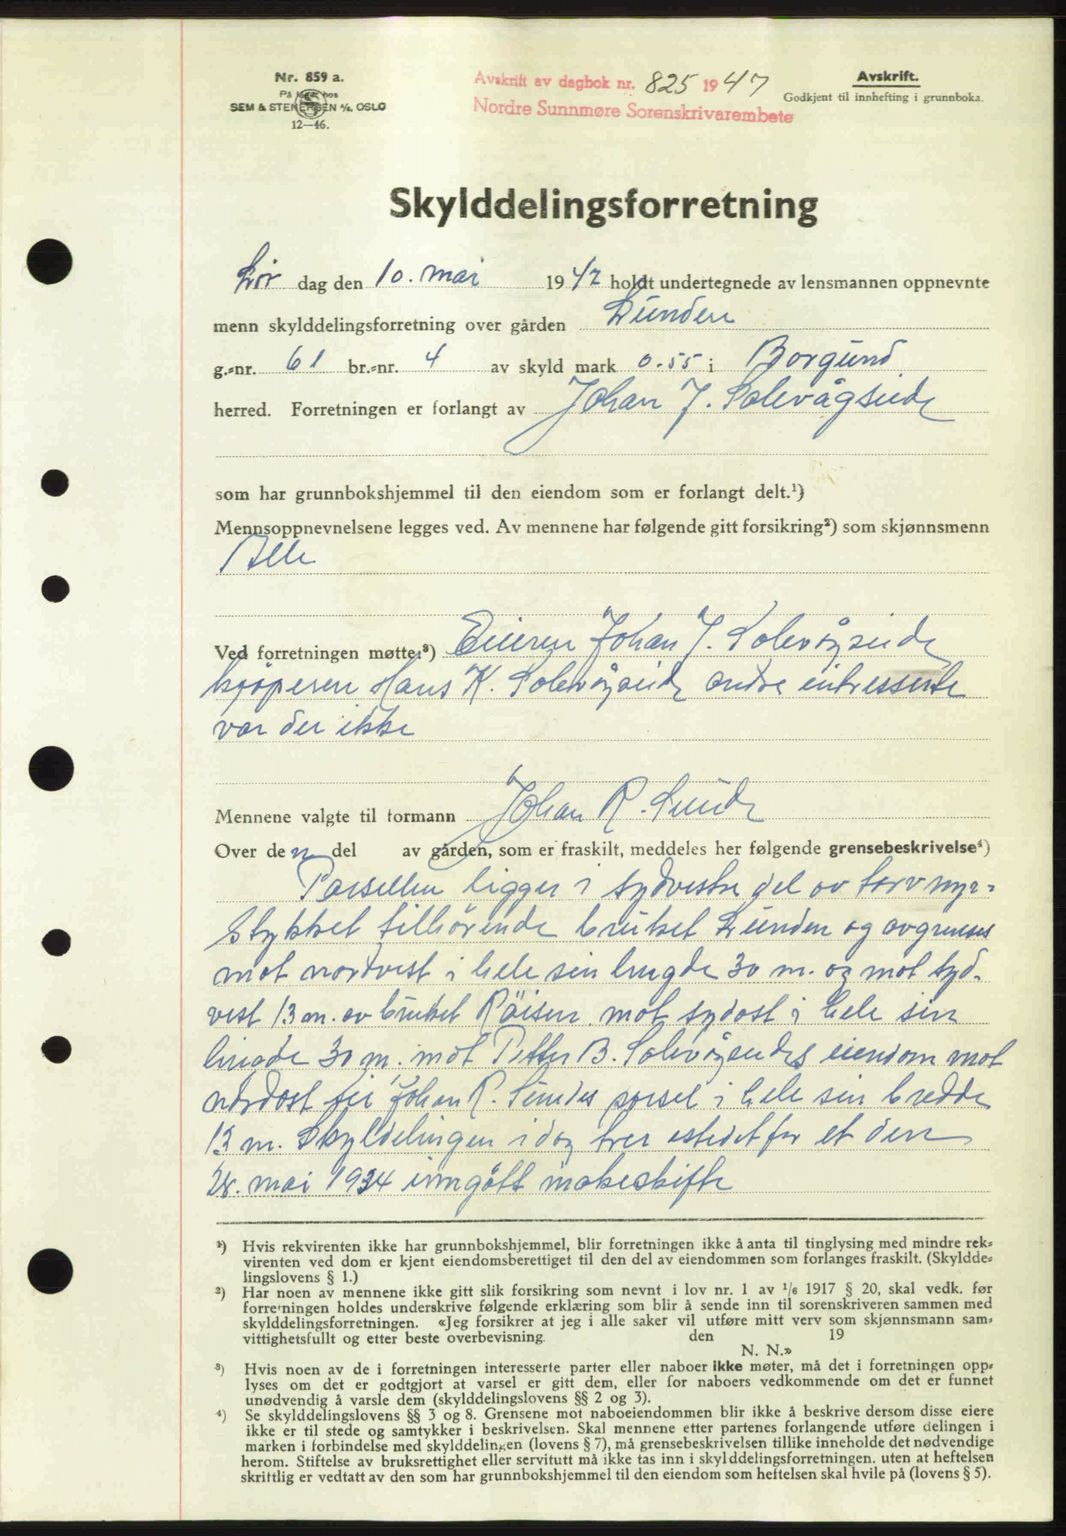 Nr. 859 a.
På lager hos
SEM & STENERSEN A/S. OSLO
12—46.
Avskrift av dagbok nr. 825 1947
Nordre Sunnmøre Sorenskrivarembete
Avskrift.
Godkjent til innhefting i grunnboka.
Skylddelingsforretning
Lør dag den 10. mai 1947 holdt undertegnede av lensmannen oppnevnte
menn skylddelingsforretning over gården Lunden
g.-nr. 61 br.-nr. 4 av skyld mark 0.55 i Borgund
herred. Forretningen er forlangt av Johan J. Solevågseide
som har grunnbokshjemmel til den eiendom som er forlangt delt.¹)
Mennsoppnevnelsene legges ved. Av mennene har følgende gitt forsikring²) som skjønnsmenn
Alle
Ved forretningen møtte:³) Eieren Johan J. Solevågseide
kjøperen Hans K. Solevågseide andre intresserte
var der ikke
Mennene valgte til formann Johan R. Sunde
Over den del av gården, som er fraskilt, meddeles her følgende grensebeskrivelse⁴)
Parsellen ligger i sydvestre del av torvmyr-
stykket tilhörende bruket Lunden og avgrenses
mot nordvest i hele sin lengde 30 m. og mot syd-
vest 13 m. av bruket Röisen mot sydost i hele sin
lengde 30 m. mot Petter B. Solevågseides eiendom mot
nordost til Johan R. Sundes parsel i hele sin bredde
13 m. Skyldelingen i dag trer istedetfor et den
28. mai 1934 inngått makeskifte
¹) Hvis rekvirenten ikke har grunnbokshjemmel, blir forretningen ikke å anta til tinglysing med mindre rek-
virenten ved dom er kjent eiendomsberettiget til den del av eiendommen som forlanges fraskilt. (Skyldde-
lingslovens § 1.)
²) Har noen av mennene ikke gitt slik forsikring som nevnt i lov nr. 1 av 1/6 1917 § 20, skal vedk. før
forretningen holdes underskrive følgende erklæring som blir å sende inn til sorenskriveren sammen med
skylddelingsforretningen. «Jeg forsikrer at jeg i alle saker vil utføre mitt verv som skjønnsmann sam-
vittighetsfullt og etter beste overbevisning. den 19
N. N.»
³) Hvis noen av de i forretningen interesserte parter eller naboer ikke møter, må det i forretningen opp-
lyses om det er godtgjort at varsel er gitt dem, eller for naboers vedkommende om det er funnet
unødvendig å varsle dem (skylddelingslovens §§ 2 og 3).
⁴) Se skylddelingslovens §§ 3 og 8. Grensene mot naboeiendommen blir ikke å beskrive dersom disse eiere
ikke er til stede og samtykker i beskrivelsen. Skal mennene etter partenes forlangende utføre delingen i
marken i forbindelse med skylddelingen (lovens § 7), må grensebeskrivelsen tillike inneholde det nødvendige
herom. Stiftelse av bruksrettighet eller servitutt må ikke tas inn i skylddelingsforretningen. uten at heftelsen
skriftlig er vedtatt av den som har grunnbokshjemmel til den eiendom som heftelsen skal hvile på (lovens § 5).